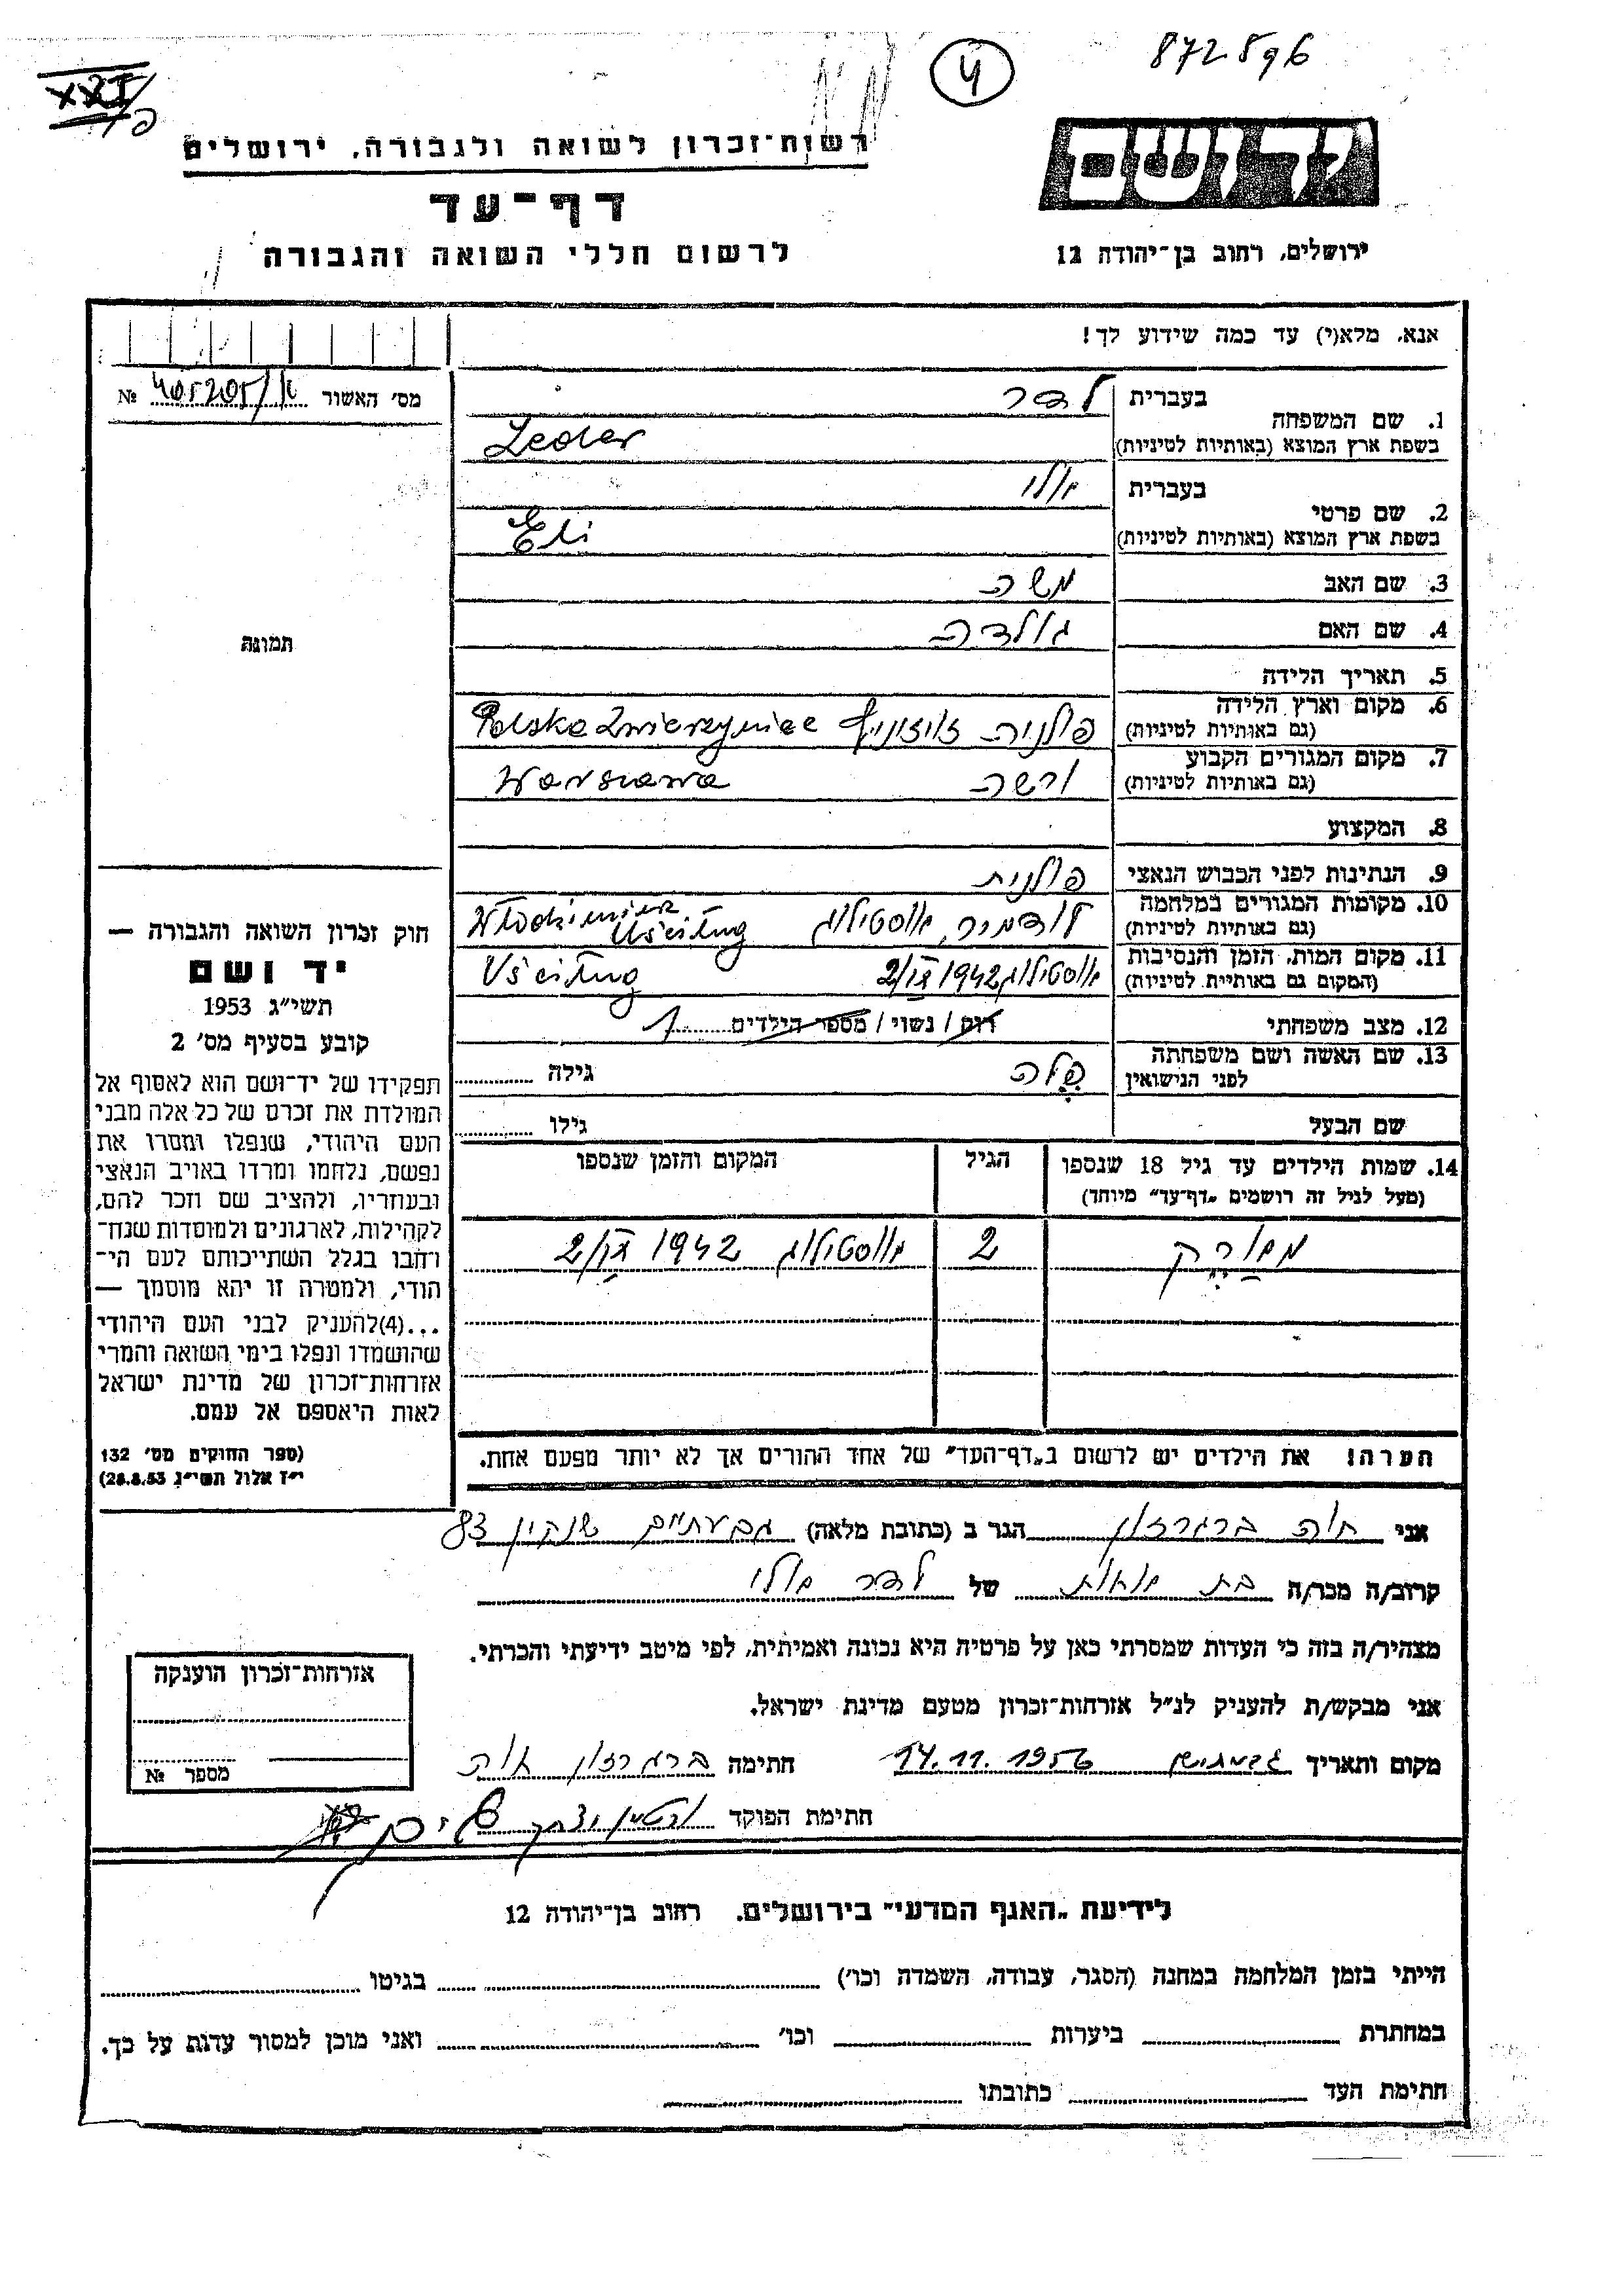 872596
4
XXI/כ
יד ושם
רשות־זכרון לשואה ולגבורה, ירושלים
דף־עד
לרשום חללי השואה והגבורה
ירושלים, רחוב בן־יהודה 12
אנא, מלא(י) עד כמה שידוע לך!
מס׳ האשור № 405205/
1. שם המשפחה
בעברית לדר
בשפת ארץ המוצא (באותיות לטיניות) Leder
2. שם פרטי
בעברית אלי
בשפת ארץ המוצא (באותיות לטיניות) Eli
3. שם האב משה
4. שם האם גולדה
5. תאריך הלידה
6. מקום וארץ הלידה
(גם באותיות לטיניות) פולניה Polska Zwierzyniec
7. מקום המגורים הקבוע
(גם באותיות לטיניות) ורשה Warszawa
8. המקצוע
9. הנתינות לפני הכבוש הנאצי פולנית
10. מקומות המגורים במלחמה
(גם באותיות לטיניות) לודמיר, אוסטילוג Włodzimierz Uściług
11. מקום המות, הזמן והנסיבות
(המקום גם באותיות לטיניות) אוסטילוג 2/IX 1942 Uściług
12. מצב משפחתי רוק / נשוי / מספר הילדים 1
13. שם האשה ושם משפחתה
לפני הנישואין פלה גילה
שם הבעל גילו
14. שמות הילדים עד גיל 18 שנספו
(מעל לגיל זה רושמים „דף־עד" מיוחד)
הגיל
המקום והזמן שנספו
2 אוסטילוג 1942 2/IX
הערה! את הילדים יש לרשום ב„דף־העד" של אחד ההורים אך לא יותר מפעם אחת.
תמונה
חוק זכרון השואה והגבורה —
יד ושם
תשי״ג 1953
קובע בסעיף מס׳ 2
תפקידו של יד־ושם הוא לאסוף אל
המולדת את זכרם של כל אלה מבני
העם היהודי, שנפלו ומסרו את
נפשם, נלחמו ומרדו באויב הנאצי
ובעוזריו, ולהציב שם וזכר להם,
לקהילות, לארגונים ולמוסדות שנח־
רבו בגלל השתייכותם לעם הי־
הודי, ולמטרה זו יהא מוסמך —
...(4)להעניק לבני העם היהודי
שהושמדו ונפלו בימי השואה והמרי
אזרחות־זכרון של מדינת ישראל
לאות היאספם אל עמם.
(ספר החוקים מס׳ 132
י״ז אלול תשי״ג 28.8.53)
אני חוה ברגרזון הגר ב (כתובת מלאה) גבעתיים שנקין 83
קרוב/ה מכר/ה בת אחות של לדר אלי
מצהיר/ה בזה כי העדות שמסרתי כאן על פרטיה היא נכונה ואמיתית, לפי מיטב ידיעתי והכרתי.
אני מבקש/ת להעניק לנ״ל אזרחות־זכרון מטעם מדינת ישראל.
מקום ותאריך 14.11.1956 חתימה ברגרזון חוה
חתימת הפוקד
אזרחות־זכרון הוענקה
מספר №
לידיעת „האגף המדעי" בירושלים, רחוב בן־יהודה 12
הייתי בזמן המלחמה במחנה (הסגר, עבודה, השמדה וכו׳) בגיטו
במחתרת ביערות וכו׳ ואני מוכן למסור עדות על כך.
חתימת העד כתובתו